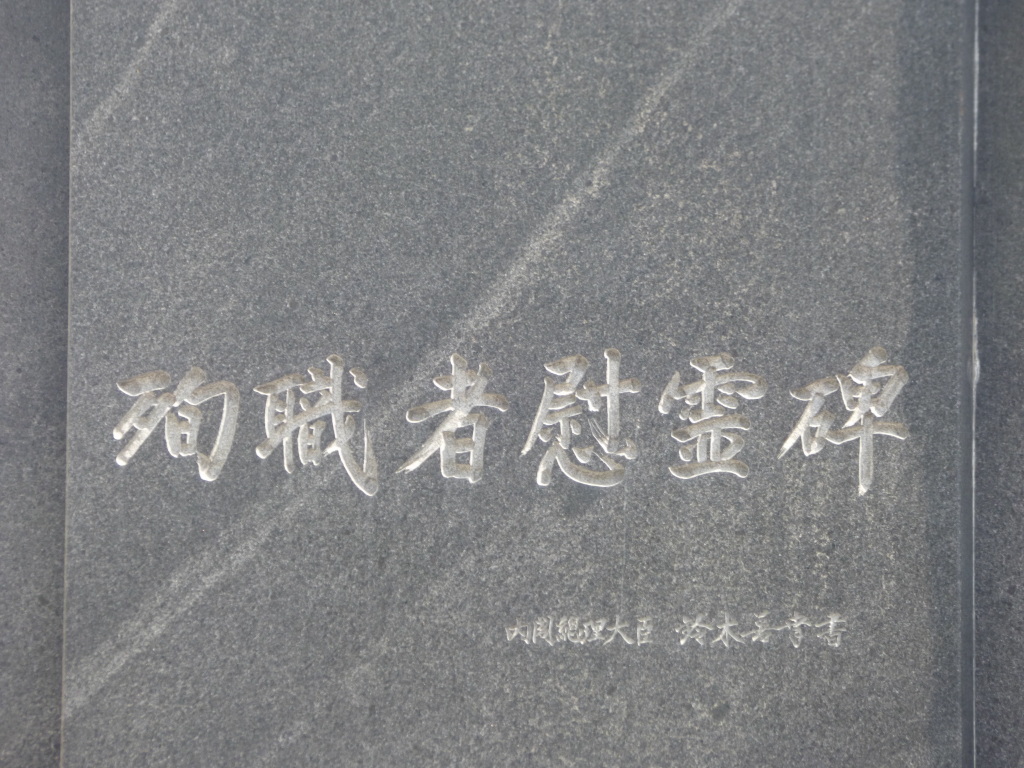 殉職者慰霊碑
内閣総理大臣 鈴木善幸書